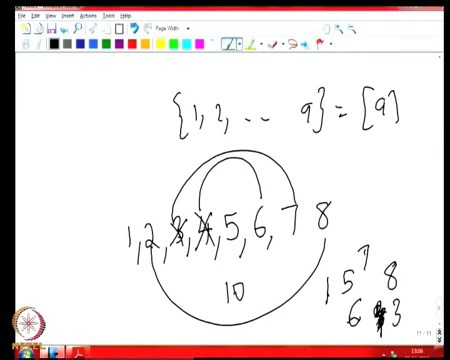 File Edit View Insert Actions Tools Help
Page Width
{1, 2, .. 9} = [9]
1, 2, 3, 4, 5, 6, 7 8
10
1 5 7 8
6 3
11 / 11
13:05